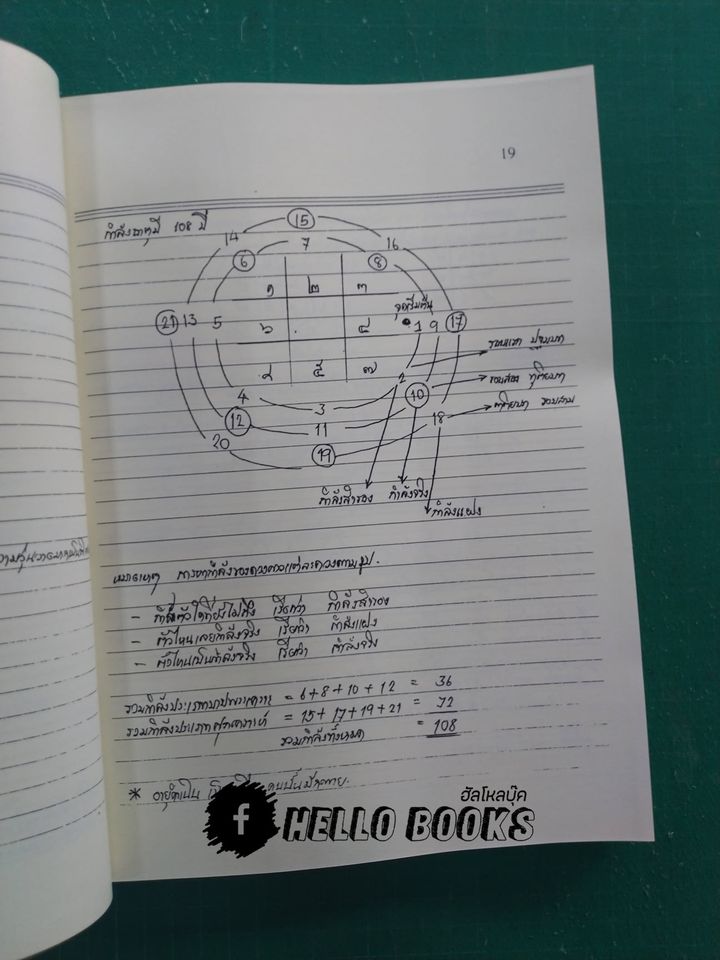 19
กำลังธาตุมี 108 ปี
15
14 16
7
6 8
๑ ๒ ๓
จุดเริ่มต้น
21 13 5 ๖ . ๔ 1 9 17
รอบแรก ปฐมบท
๘ ๕ ๗ 2
รอบสอง ทุติยบท
4 3 10
ตติยบท รอบสาม
12 11 18
20 19
กำลังสำรอง กำลังจริง
กำลังแฝง
หมายเหตุ การหากำลังของดวงดาวแต่ละดวงตามรูป.
- ที่ยังไม่ถึง เรียกว่า กำลังสำรอง
- ตัวไหนเลยกำลังจริง เรียกว่า กำลังแฝง
- ตัวไหนเป็นกำลังจริง เรียกว่า กำลังจริง
รวมกำลังประเภทบาปพระเคราะห์ = 6+8+10+12 = 36
รวมกำลังประเภทศุภเคราะห์ = 15+17+19+21 = 72
รวมกำลังทั้งหมด = 108
*
f HELLO BOOKS
ฮัลโหลบุ๊ค